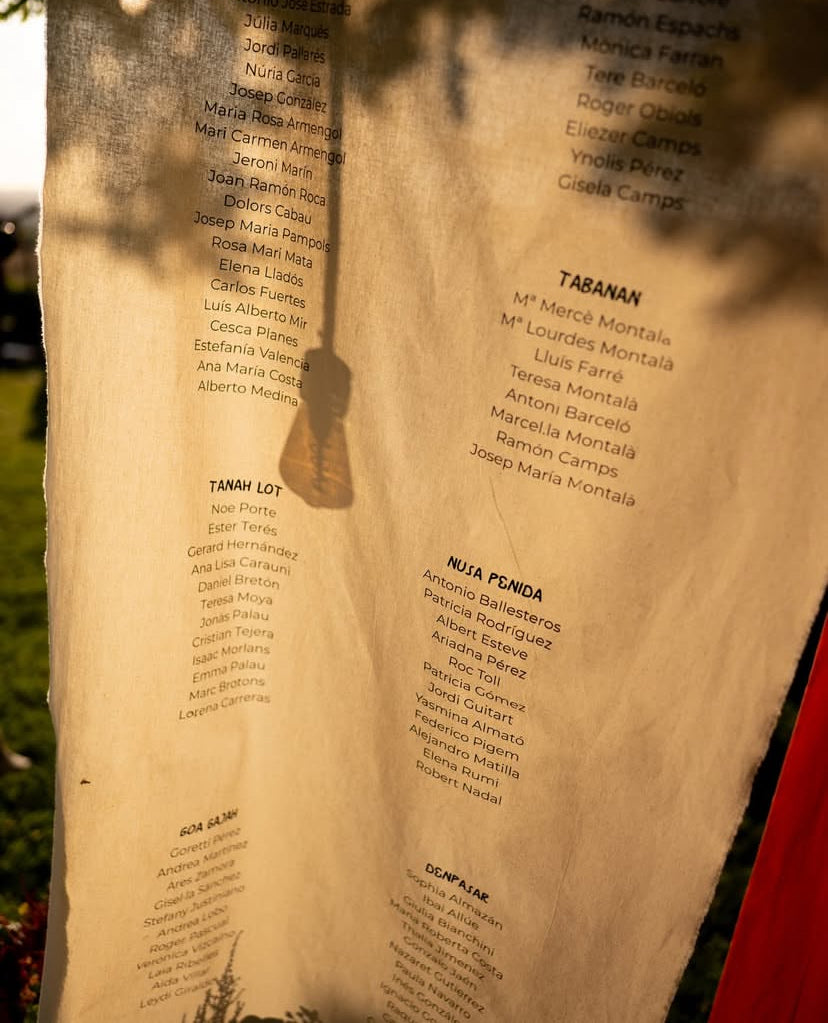 Antonio José Estrada
Júlia Marqués
Jordi Pallarés
Núria García
Josep González
Maria Rosa Armengol
Mari Carmen Armengol
Jeroni Marín
Joan Ramón Roca
Dolors Cabau
Josep Maria Pampols
Rosa Mari Mata
Elena Lladós
Carlos Fuertes
Luís Alberto Mir
Cesca Planes
Estefanía Valencia
Ana María Costa
Alberto Medina
TANAH LOT
Noe Porte
Ester Terés
Gerard Hernández
Ana Lisa Carauni
Daniel Bretón
Teresa Moya
Jonás Palau
Cristian Tejera
Isaac Morlans
Emma Palau
Marc Brotons
Lorena Carreras
GOA GAJAH
Goretti Pérez
Andrea Martínez
Ares Zamora
Gisel·la Sánchez
Stefany Justiniano
Andrea Lobo
Roger Pascual
Verónica Vizcaíno
Laia Ribelles
Aida Villar
Leydi Giraldo
Ramón Espachs
Mònica Farran
Tere Barceló
Roger Obiols
Eliezer Camps
Ynolis Pérez
Gisela Camps
TABANAN
Mª Mercè Montalà
Mª Lourdes Montalà
Lluís Farré
Teresa Montalà
Antoni Barceló
Marcel.la Montalà
Ramón Camps
Josep María Montalà
NUSA PENIDA
Antonio Ballesteros
Patricia Rodríguez
Albert Esteve
Ariadna Pérez
Roc Toll
Patricia Gómez
Jordi Guitart
Yasmina Almató
Federico Pigem
Alejandro Matilla
Elena Rumi
Robert Nadal
DENPASAR
Sophia Almazán
Ibai Allúe
Giulia Bianchini
Maria Roberta Costa
Thalia Jimenez
Gonzalo Jaén
Nazaret Gutierrez
Paula Navarro
Inés González
Ignacio